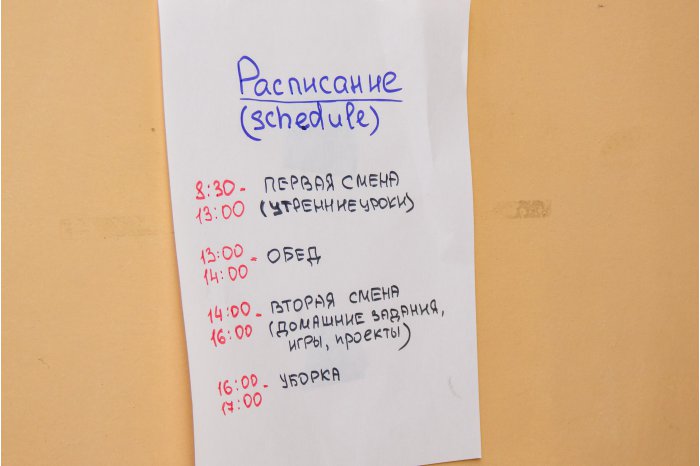 Расписание
(schedule)
8:30 - ПЕРВАЯ СМЕНА
13:00 (УТРЕННИЕ УРОКИ)
13:00 - ОБЕД
14:00
14:00 - ВТОРАЯ СМЕНА
16:00 (ДОМАШНИЕ ЗАДАНИЯ,
ИГРЫ, ПРОЕКТЫ)
16:00 - УБОРКА
17:00